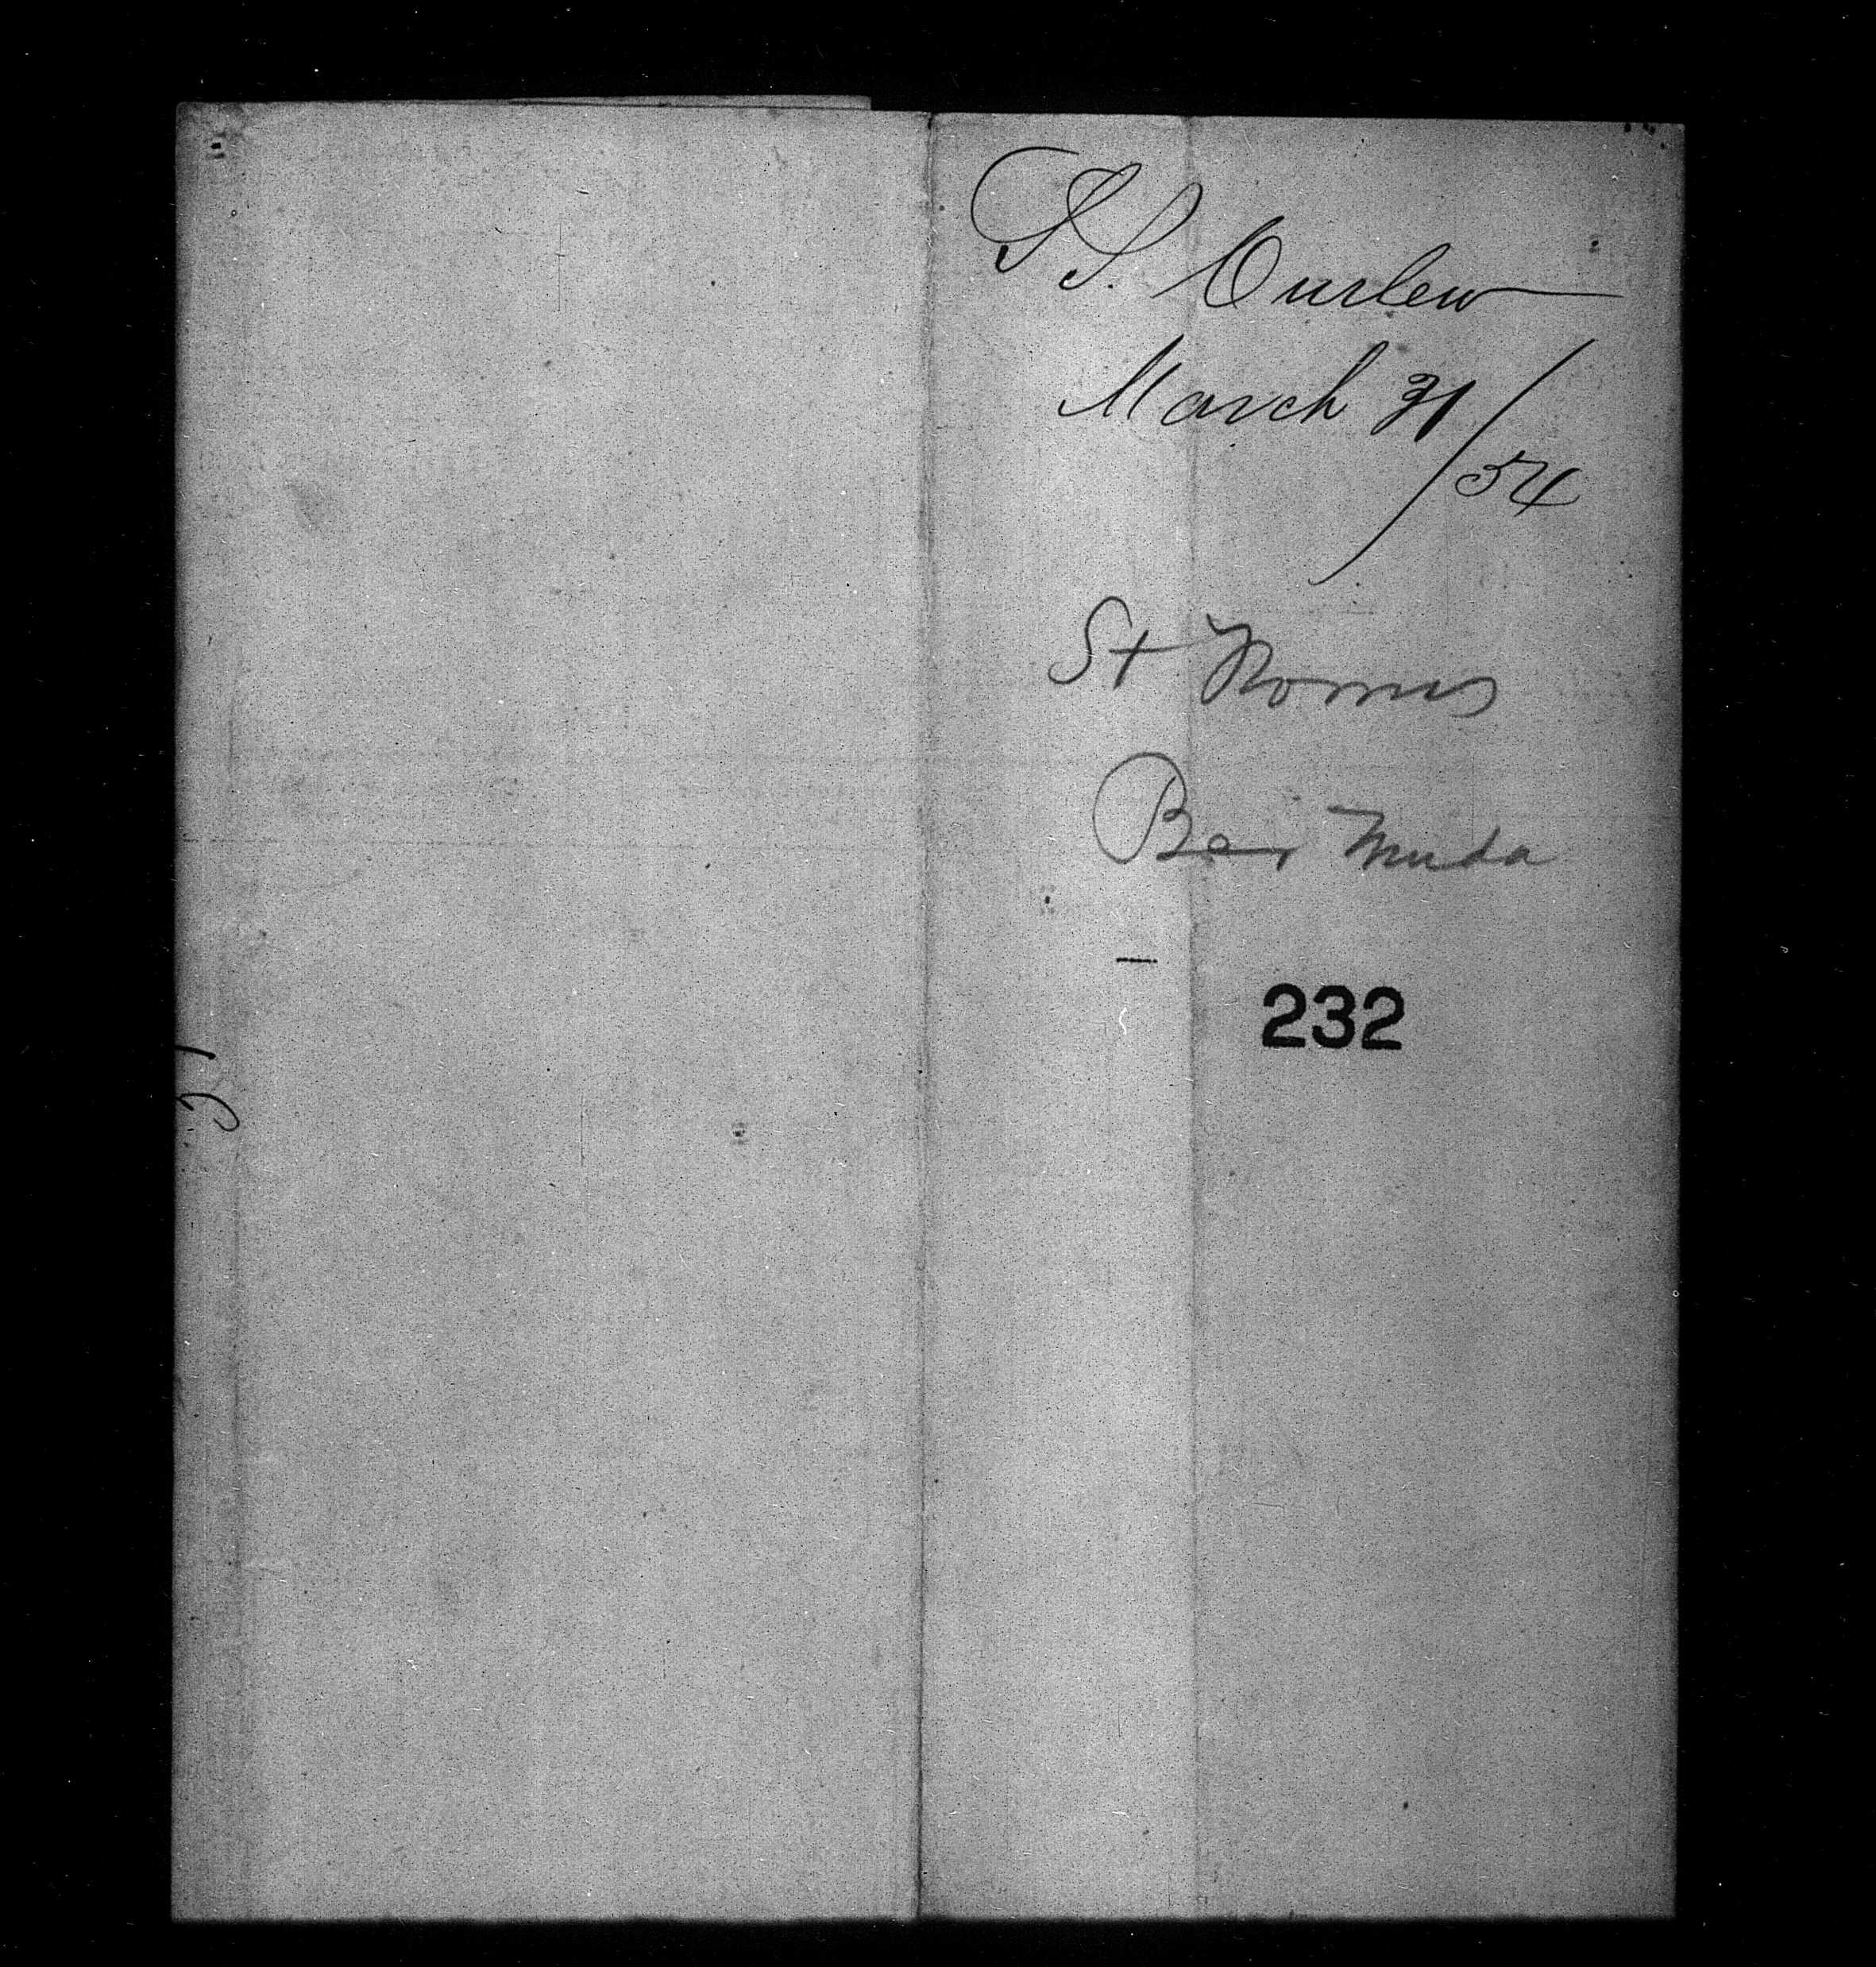 SS. Curlew
March 31/54
St Thomas
Bermuda
232